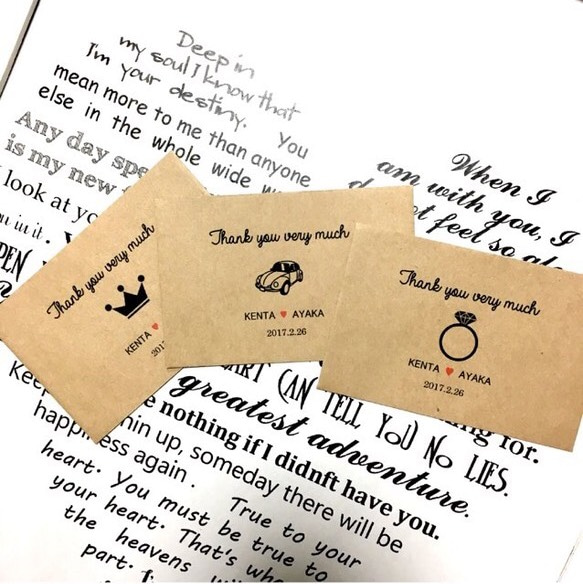 Deep in
my soul I know that
I'm your destiny. You
mean more to me than anyone
else in the whole wide
Any day
is my new
I look at
in it.
When I
am with you, I
feel so
Thank you very much
KENTA ♥
Thank you very much
KENTA ♥ AYAKA
2017.2.26
Thank you very much
KENTA ♥ AYAKA
2017.2.26
CAN TELL YOU NO LIES.
for.
greatest adventure.
nothing if I didnft have you.
Keep chin up, someday there will be
happiness again.
True to your
heart. You must be true to
your heart. That's
the heavens
part.